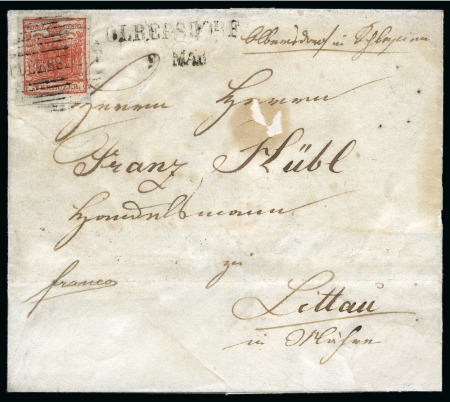 OLBERSDORF
9 MAI
Olbersdorf in Schlesien
Herrn Herrn
Franz Hübl
Handelsmann
zu
franco
Littau
in Mähren